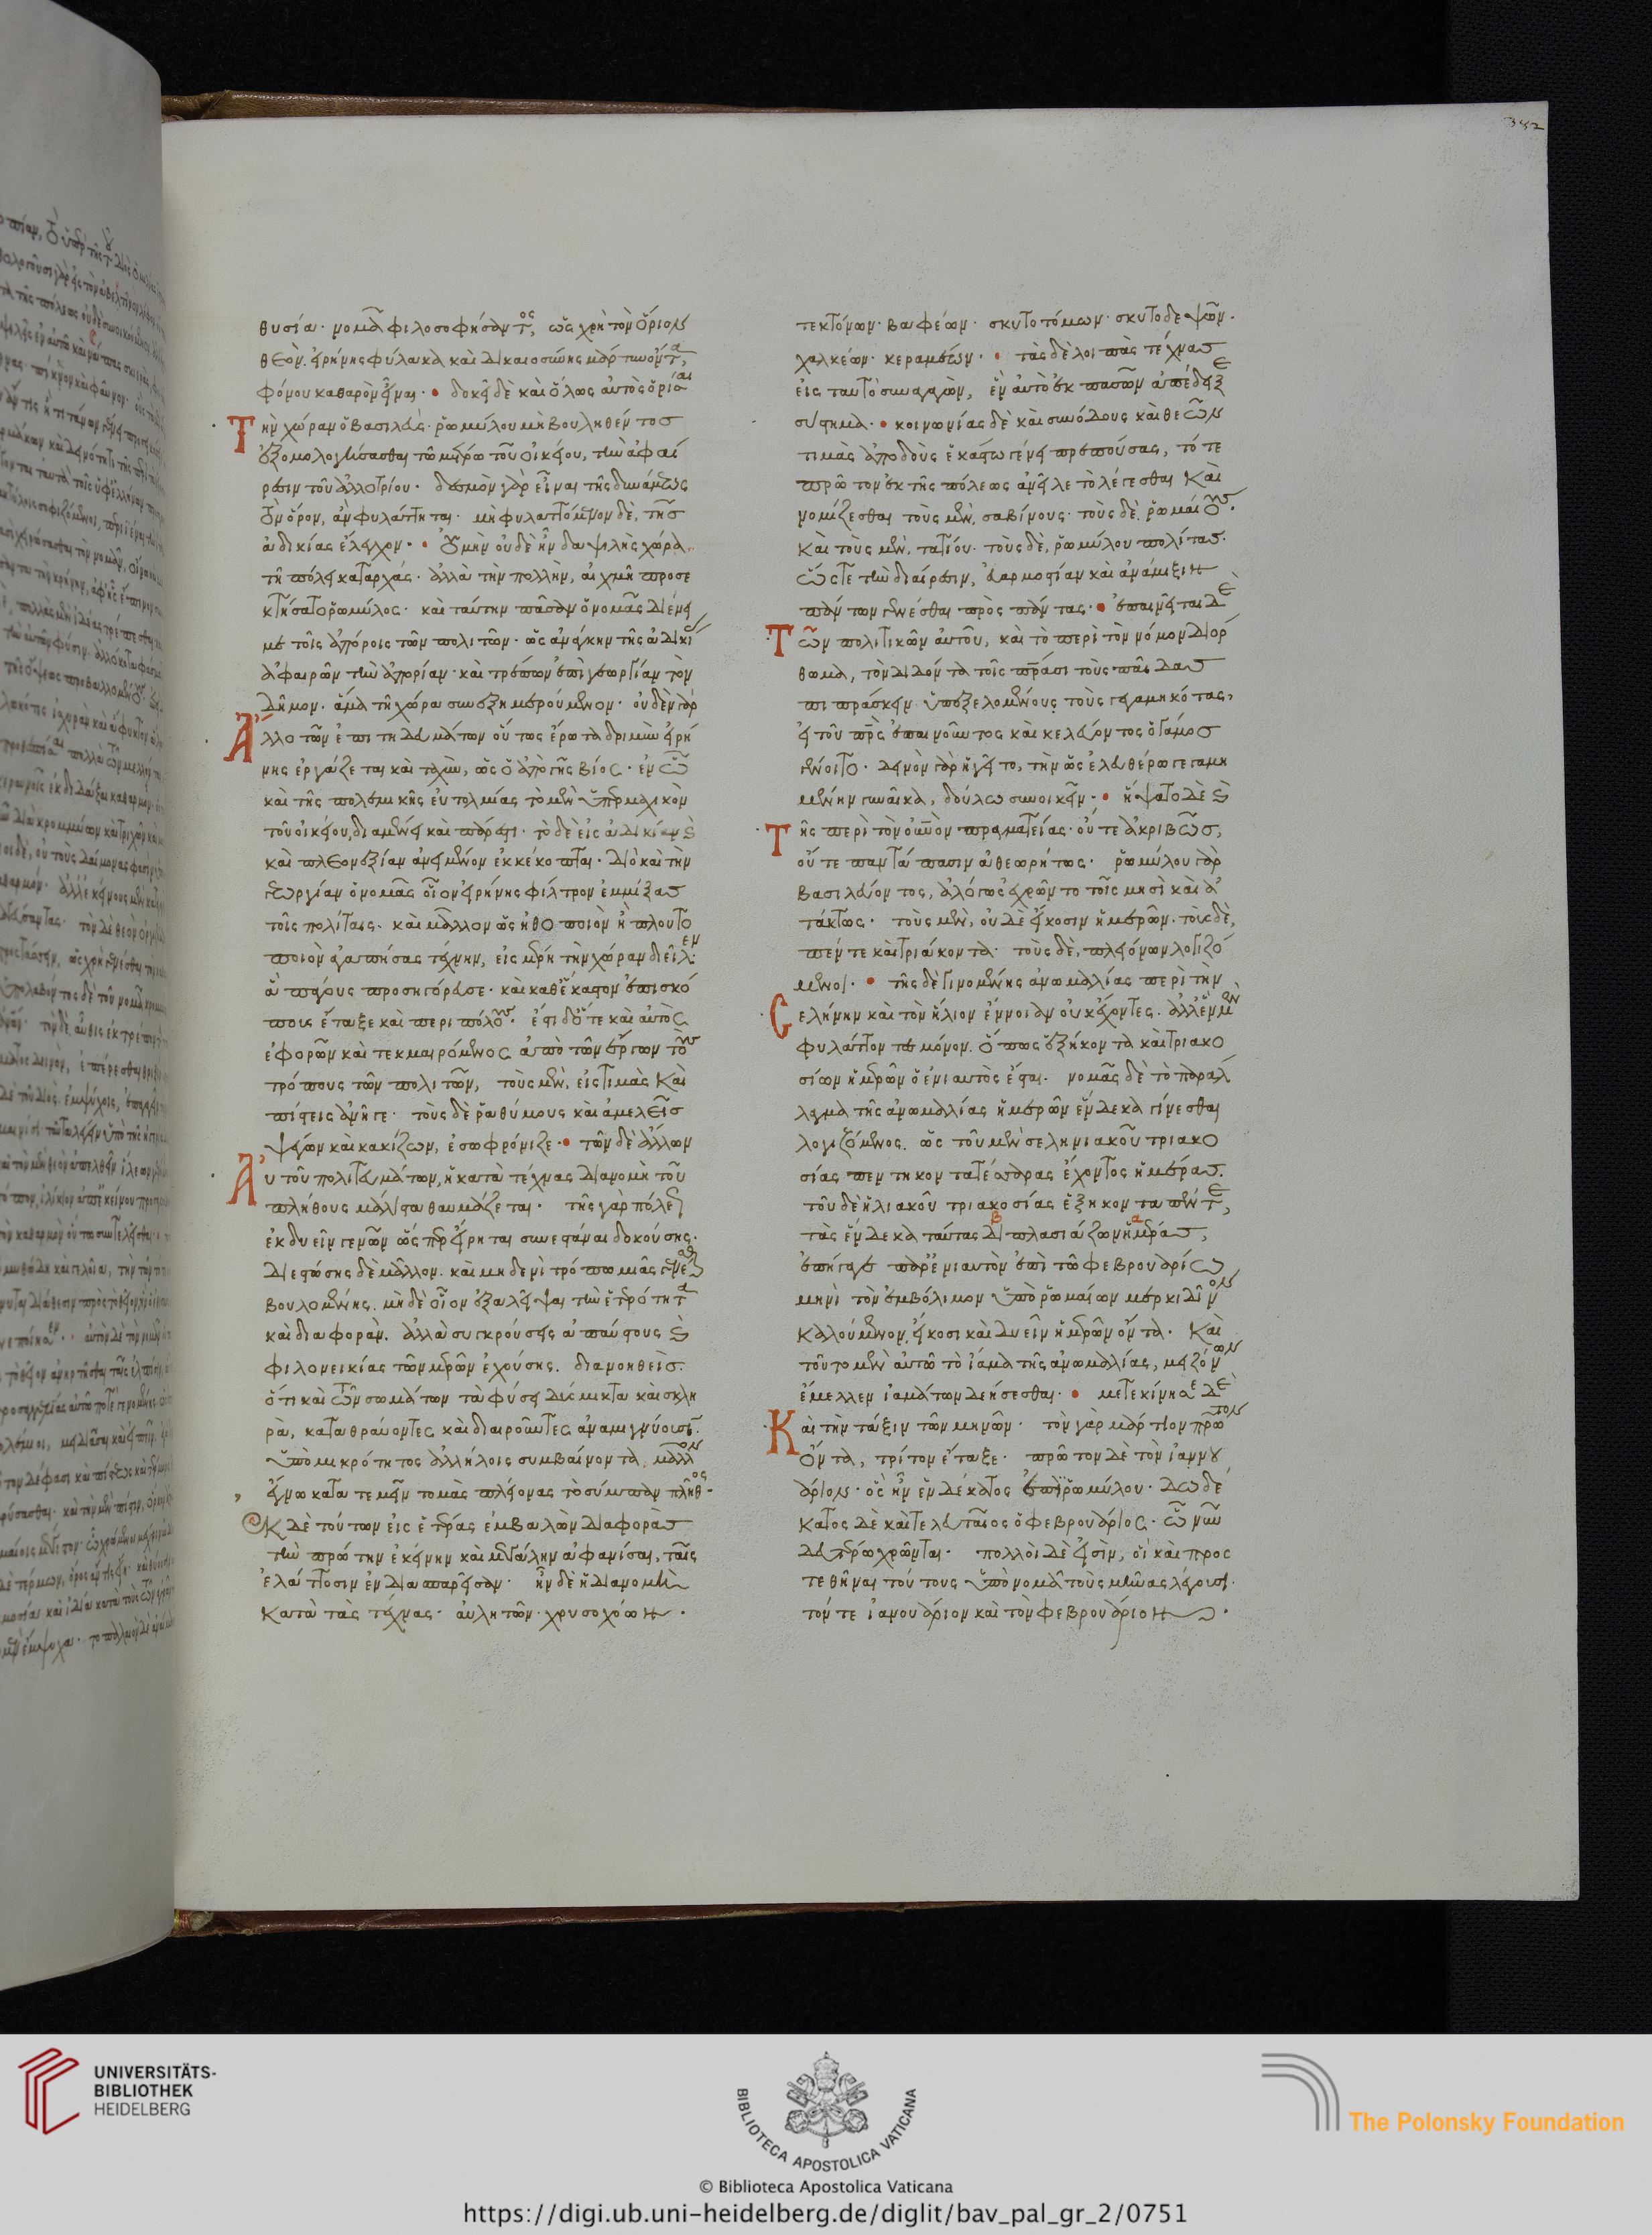 θυσία· νομᾶ φιλοσοφήσαντος, ὡς χρὴ τὸν ὅριον
θεὸν. εἰρήνης φύλακα καὶ δικαιοσύνης μάρτυν ὄντα,
φόνου καθαρὸν εἶναι· δοκεῖ δὲ καὶ ὅλως αὐτὸς ὁρίσαι
Τὴν χώραν ὁ βασιλεύς· ῥωμύλου μὴ βουληθέντος
ἐξομολογήσασθαι τῷ μέτρῳ τοῦ οἰκείου, τὴν ἀφαί
ρεσιν τοῦ ἀλλοτρίου· δεσμὸν γὰρ εἶναι τῆς δυνάμεως
τὸν ὅρον, ἂν φυλάττηται· μὴ φυλαττόμενον δὲ, τῆς
ἀδικίας ἔλεγχον· οὐ μὴν οὐδὲ ἦν δαψιλὴς χώρα
τῇ πόλει καταρχάς· ἀλλὰ τὴν πολλὴν, αἰχμῇ προσε
κτήσατο ῥωμύλος· καὶ ταύτην πᾶσαν ὁ νομᾶς διένει
με τοῖς ἀπόροις τῶν πολιτῶν· ὡς ἀνάγκην τῆς ἀδικί
ἀφαιρῶν τὴν ἀπορίαν· καὶ τρέπων ἐπὶ γεωργίαν τὸν
δῆμον. ἅμα τῇ χώρα συνεξημερούμενον· οὐδὲν γὰρ
Ἄλλο τῶν ἐπιτηδευμάτων οὕτως ἔρωτα δριμὺν εἰρή
νης ἐργάζεται καὶ ταχὺν, ὡς ὁ ἀπὸ γῆς βίος· ἐν ᾧ
καὶ τῆς πολεμικῆς εὐτολμίας τὸ μὲν ὑπερμαχικὸν
τοῦ οἰκείου, διαμένει καὶ πάρεστι· τὸ δὲ εἰς ἀδικίαν καὶ
καὶ πλεονεξίαν ἀνειμένον ἐκκέκοπται· διὸ καὶ τὴν
γεωργίαν ὁ νομᾶς οἷον εἰρήνης φίλτρον ἐμμίξας
τοῖς πολίταις. καὶ μᾶλλον ὡς ἠθοποιὸν ἢ πλουτο
ποιὸν ἀγαπήσας τέχνην, εἰς μέρη τὴν χώραν διεῖλεν·
ἃ πάγους προσηγόρευσε· καὶ καθ' ἕκαστον ἐπισκό
πους ἔταξε καὶ περιπόλους· ἔστι δ' ὅτε καὶ αὐτὸς
ἐφορῶν καὶ τεκμαιρόμενος ἀπὸ τῶν ἔργων τοὺς
τρόπους τῶν πολιτῶν, τοὺς μὲν, εἰς τιμὰς καὶ
πίστεις ἀνῆγε· τοὺς δὲ ῥαθύμους καὶ ἀμελεῖς
ψέγων καὶ κακίζων, ἐσωφρόνιζε· τῶν δὲ ἄλλων
Αὐτοῦ πολιτευμάτων, ἡ κατὰ τέχνας διανομὴ τοῦ
πλήθους μάλιστα θαυμάζεται· τῆς γὰρ πόλεως
ἐκ δυεῖν γενῶν ὥσπερ εἴρηται συνεστάναι δοκούσης·
διεστώσης δὲ μᾶλλον. καὶ μηδενὶ τρόπω μιᾶς γενέσθαι
βουλομένης. μηδὲ οἷον ἐξαλεῖψαι τὴν ἑτερότητα
καὶ διαφορὰν. ἀλλὰ συγκρούσεις ἀπαύστους καὶ
φιλονεικίας τῶν μερῶν ἐχούσης. διανοηθεὶς.
ὅτι καὶ τῶν σωμάτων τὰ φύσει δύσμικτα καὶ σκλη
ρὰ, καταθραύοντες καὶ διαιροῦντες ἀναμιγνύουσιν.
ὑπὸ μικρότητος ἀλλήλοις συμβαίνοντα μᾶλλον
ἔγνω κατατεμεῖν τομὰς πλείονας τὸ σύμπαν πλῆθος·
Ἐκ δὲ τούτων εἰς ἑτέρας ἐμβαλὼν διαφορὰς
τὴν πρώτην ἐκείνην καὶ μεγάλην ἀφανίσαι, ταῖς
ἐλάττοσιν ἐνδιασπαρεῖσαν· ἦν δὲ ἡ διανομὴ
κατὰ τὰς τέχνας· αὐλητῶν· χρυσοχόων·
τεκτόνων· βαφέων· σκυτοτόμων· σκυτοδεψῶν·
χαλκέων· κεραμέων· τὰς δὲ λοιπὰς τέχνας
εἰς ταυτὸ συναγαγὼν, ἓν αὐτὸ ἐκ πασῶν ἀπέδειξε
σύστημα· κοινωνίας δὲ καὶ συνόδους καὶ θεῶν
τιμὰς ἀποδοὺς ἑκάστω γένει πρεπούσας, τότε
πρῶτον ἐκ τῆς πόλεως ἀνεῖλε τὸ λέγεσθαι καὶ
νομίζεσθαι τοὺς μὲν, σαβίνους· τοὺς δὲ, ῥωμαίους·
καὶ τοὺς μὲν, τατίου· τοὺς δὲ, ῥωμύλου πολίτας·
ὥστε τὴν διαίρεσιν, εὐαρμοστίαν καὶ ἀνάμιξιν
πάντων γενέσθαι πρὸς πάντας· ἐπαινεῖται δὲ
Τῶν πολιτικῶν αὐτοῦ, καὶ τὸ περὶ τὸν νόμον διόρ
θωμα, τὸν διδόντα τοῖς πατράσι τοὺς παῖδας
πιπράσκειν ὑπεξελομένους τοὺς γεγαμηκότας,
εἰ τοῦ πατρὸς ἐπαινοῦντος καὶ κελεύοντος ὁ γάμος
γένοιτο· δεινὸν γὰρ ἡγεῖτο, τὴν ὡς ἐλευθέρω γεγαμη
μένην γυναῖκα, δούλω συνοικεῖν· ἥψατο δὲ καὶ
Τῆς περὶ τὸν οὐρανὸν πραγματείας· οὔτε ἀκριβῶς,
οὔτε παντάπασιν ἀθεωρήτως· ῥωμύλου γὰρ
βασιλεύοντος, ἀλόγως ἐχρῶντο τοῖς μησὶ καὶ ἀ
τάκτως· τοὺς μὲν, οὐδὲ εἴκοσιν ἡμερῶν· τοὺς δὲ,
πέντε καὶ τριάκοντα· τοὺς δὲ, πλειόνων λογιζό
μενοι· τῆς δὲ γινομένης ἀνωμαλίας περὶ τὴν
Σελήνην καὶ τὸν ἥλιον ἔννοιαν οὐκ ἔχοντες. ἀλλ' ἓν μὲν
φυλάττοντες μόνον. ὅπως ἑξήκοντα καὶ τριακο
σίων ἡμερῶν ὁ ἐνιαυτὸς ἔσται· νομᾶς δὲ τὸ παράλ
λαγμα τῆς ἀνωμαλίας ἡμερῶν ἕνδεκα γίνεσθαι
λογιζόμενος. ὡς τοῦ μὲν σεληνιακοῦ τριακο
σίας πεντηκοντατέσσαρας ἔχοντος ἡμέρας·
τοῦ δὲ ἡλιακοῦ τριακοσίας ἑξηκονταπέντε,
τὰς ἕνδεκα ταύτας διπλασιάζων ἡμέρας,
ἐπήγαγε παρ' ἐνιαυτὸν ἐπὶ τῷ φεβρουαρίω
μηνὶ τὸν ἐμβόλιμον ὑπὸ ῥωμαίων μερκιδῖνον
καλούμενον, εἴκοσι καὶ δυεῖν ἡμερῶν ὄντα· καὶ
τοῦτο μὲν αὐτῶ τὸ ἴαμα τῆς ἀνωμαλίας, μειζόνων
ἔμελλεν ἰαμάτων δεήσεσθαι· μετεκίνησε δὲ
Καὶ τὴν τάξιν τῶν μηνῶν· τὸν γὰρ μάρτιον πρῶτον
ὄντα, τρίτον ἔταξε· πρῶτον δὲ τὸν ἰαννου
άριον· ὃς ἦν ἑνδέκατος ἐπὶ ῥωμύλου· δωδέ
κατος δὲ καὶ τελευταῖος ὁ φεβρουάριος· ᾧ νῦν
δευτέρω χρῶνται· πολλοὶ δὲ εἰσὶν, οἳ καὶ προς
τεθῆναι τούτους ὑπὸ νομᾶ τοὺς μῆνας λέγουσι·
τόν τε ἰανουάριον καὶ τὸν φεβρουάριον·
382
UNIVERSITÄTS-
BIBLIOTHEK
HEIDELBERG
BIBLIOTECA APOSTOLICA VATICANA
The Polonsky Foundation
© Biblioteca Apostolica Vaticana
https://digi.ub.uni-heidelberg.de/diglit/bav_pal_gr_2/0751